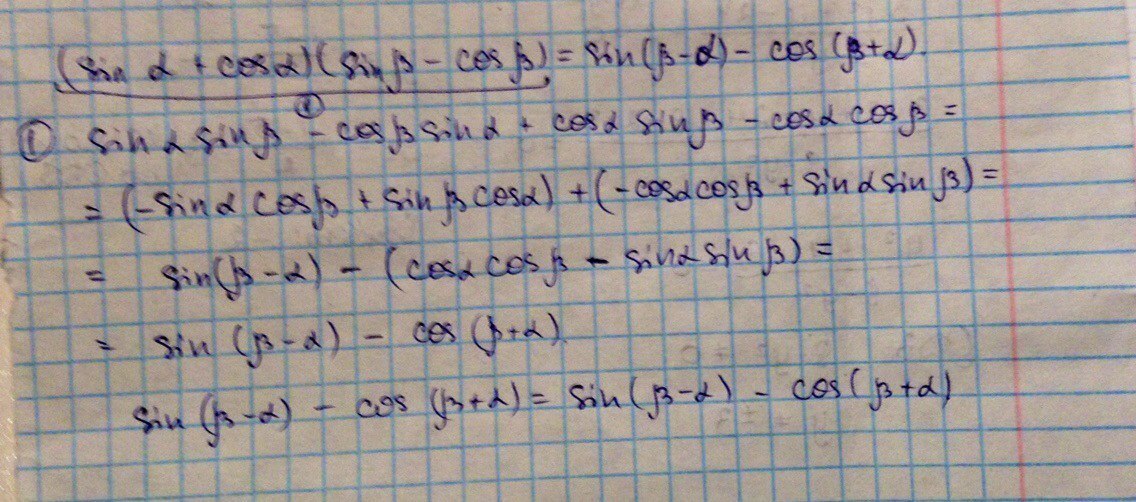 (sin α + cos α)(sin β - cos β) = sin(β-α) - cos(β+α).
①
① sin α sin β - cos β sin α + cos α sin β - cos α cos β =
= (-sin α cos β + sin β cos α) + (-cos α cos β + sin α sin β) =
= sin(β-α) - (cos α cos β - sin α sin β) =
= sin (β-α) - cos (β+α).
sin (β-α) - cos (β+α) = sin (β-α) - cos (β+α)